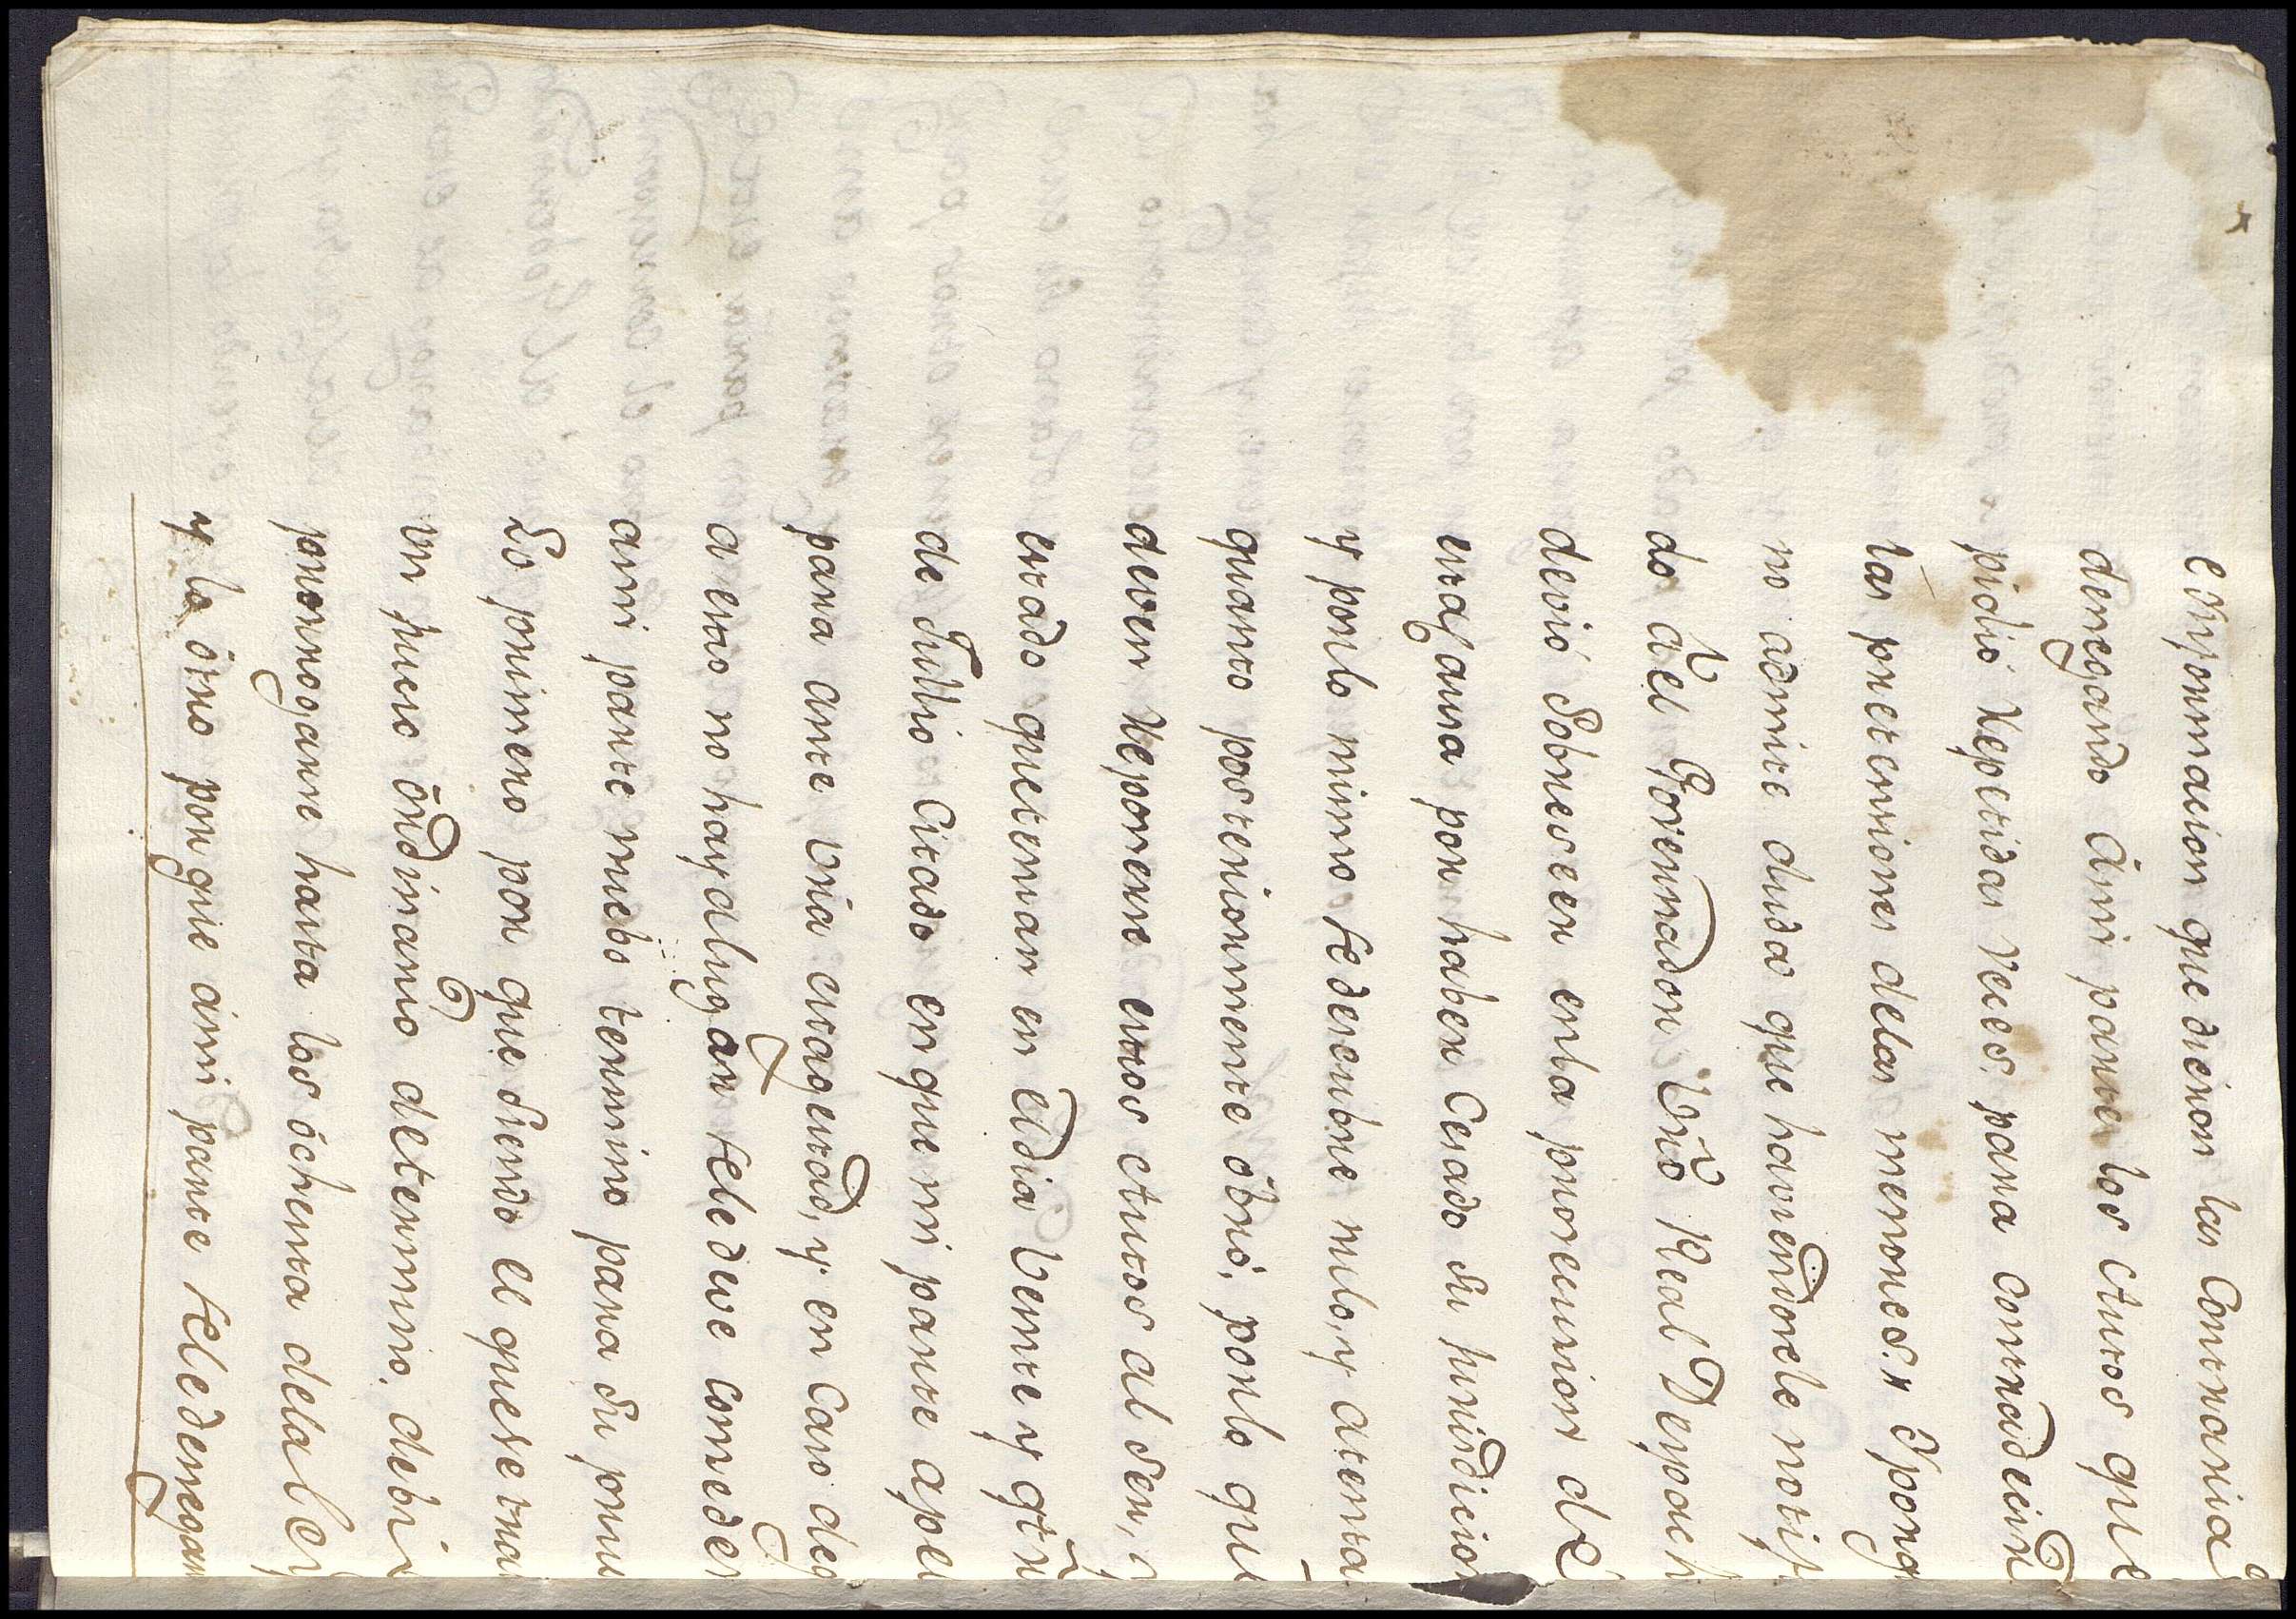 comprovacion que dieron las Contraria
denegando â mi parte los Autos que
pidió Repetidas veces, para contradecir
las pretenciones delas menores. y porq
no admite duda que haviendosele notif
do âel Governador Vr̃o Real Despach
devió Sobreseer enla provecucion de
esta Causa por haber Cesado su jurisdicion
y porlo mismo se descubre nulo, y atenta
quanto posteriormente óbró, porlo que
deven Reponerse estos Autos al ser, i
estado que tenian en eldia Veinte y qtr̃
de Jullio Citado en que mi parte apel
para ante Vr̃a Magestad, y en Caso deq
a esto no hay alugar sele deve conceder
ami parte nuebo termino para su pru
Lo primero por que siendo el que se tra
un juicio ôrdinario determino, debi
prorrogarse hasta los óchenta dela Ley
y lo ôtro porque âmi parte sele denegaro